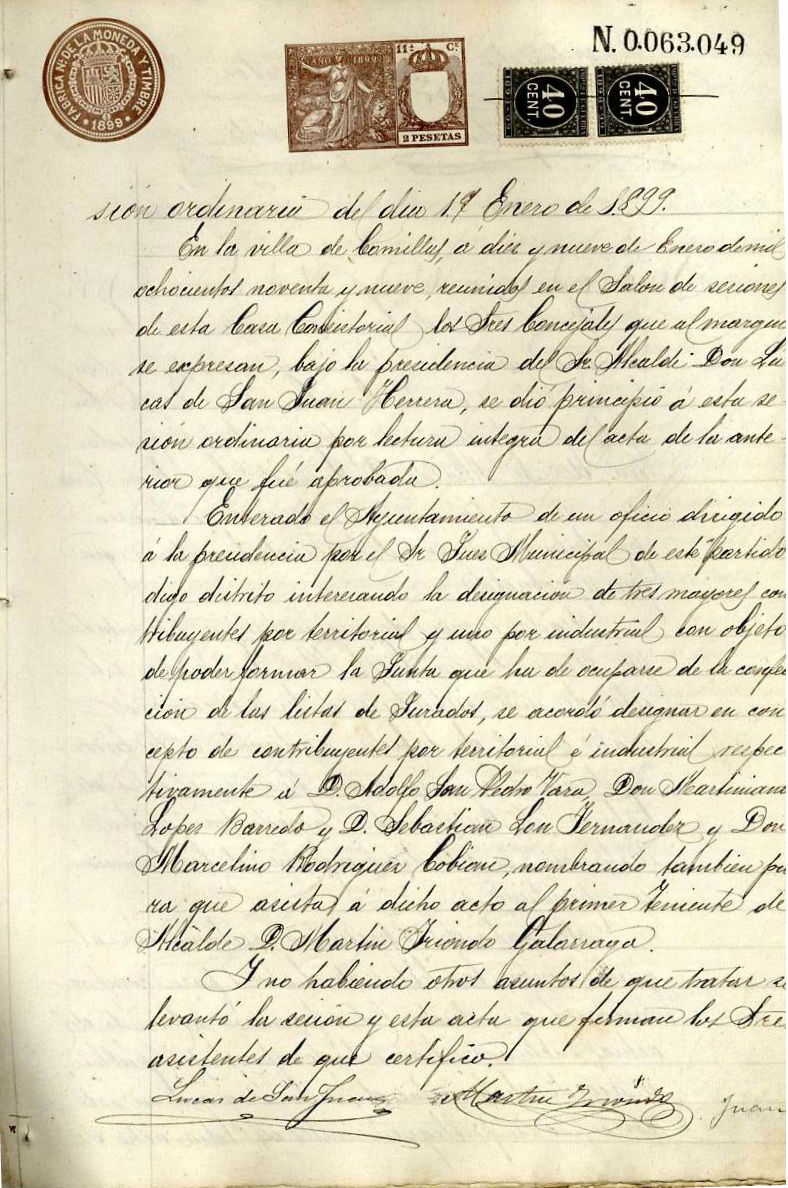 FABRICA NL. DE LA MONEDA Y TIMBRE
* 1899 *
AÑO 1899
11ª Cē
2 PESETAS
40 CENT
40 CENT
N. 0.063.049
sión ordinaria del dia 19 Enero de 1899.
En la villa de Comillas, á diez y nueve de Enero de mil
ochocientos noventa y nueve, reunidos en el Salon de sesiones
de esta Casa Consistorial los Sres Concejales que al margen
se expresan, bajo la presidencia del Sr. Alcalde Don Lu
cas de San Juan Herrera, se dió principio á esta se-
sión ordinaria por lectura integra del acta de la ante-
rior que fué aprobada.
Enterado el Ayuntamiento de un oficio dirigido
á la presidencia por el Sr Juez Municipal de este partido
digo distrito interesando la designacion de tres mayores con
tribuyentes por territorial y uno por industrial con objeto
de poder formar la Junta que ha de ocuparse de la confec
cion de las listas de Jurados, se acordó designar en con
cepto de contribuyentes por territorial é industrial respec
tivamente á D. Adolfo San Pedro Vara, Don Martiniano
Lopez Barredo y D. Sebastian Lon Fernandez y Don
Marcelino Rodriguez Cobian, nombrando tambien pa
ra que asista á dicho acto al primer Teniente de
Alcalde D. Martin Iriondo Galarraga.
Y no habiendo otros asuntos de que tratar se
levantó la sesión y esta acta que firman los Sres
asistentes de que certifico.
Lucas de San Juan Martin Iriondo Juan